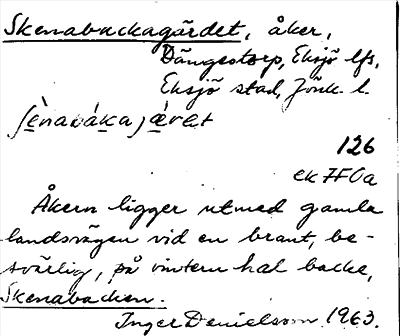 Skenabackagärdet, åker,
Dängestorp, Eksjö lfs,
Eksjö stad, Jönk. l.
126
ek 7F0a
Åkern ligger utmed gamla
landsvägen vid en brant, be-
svärlig, på vintern hal backe,
Skenabacken.
Inger Danielsson 1963.